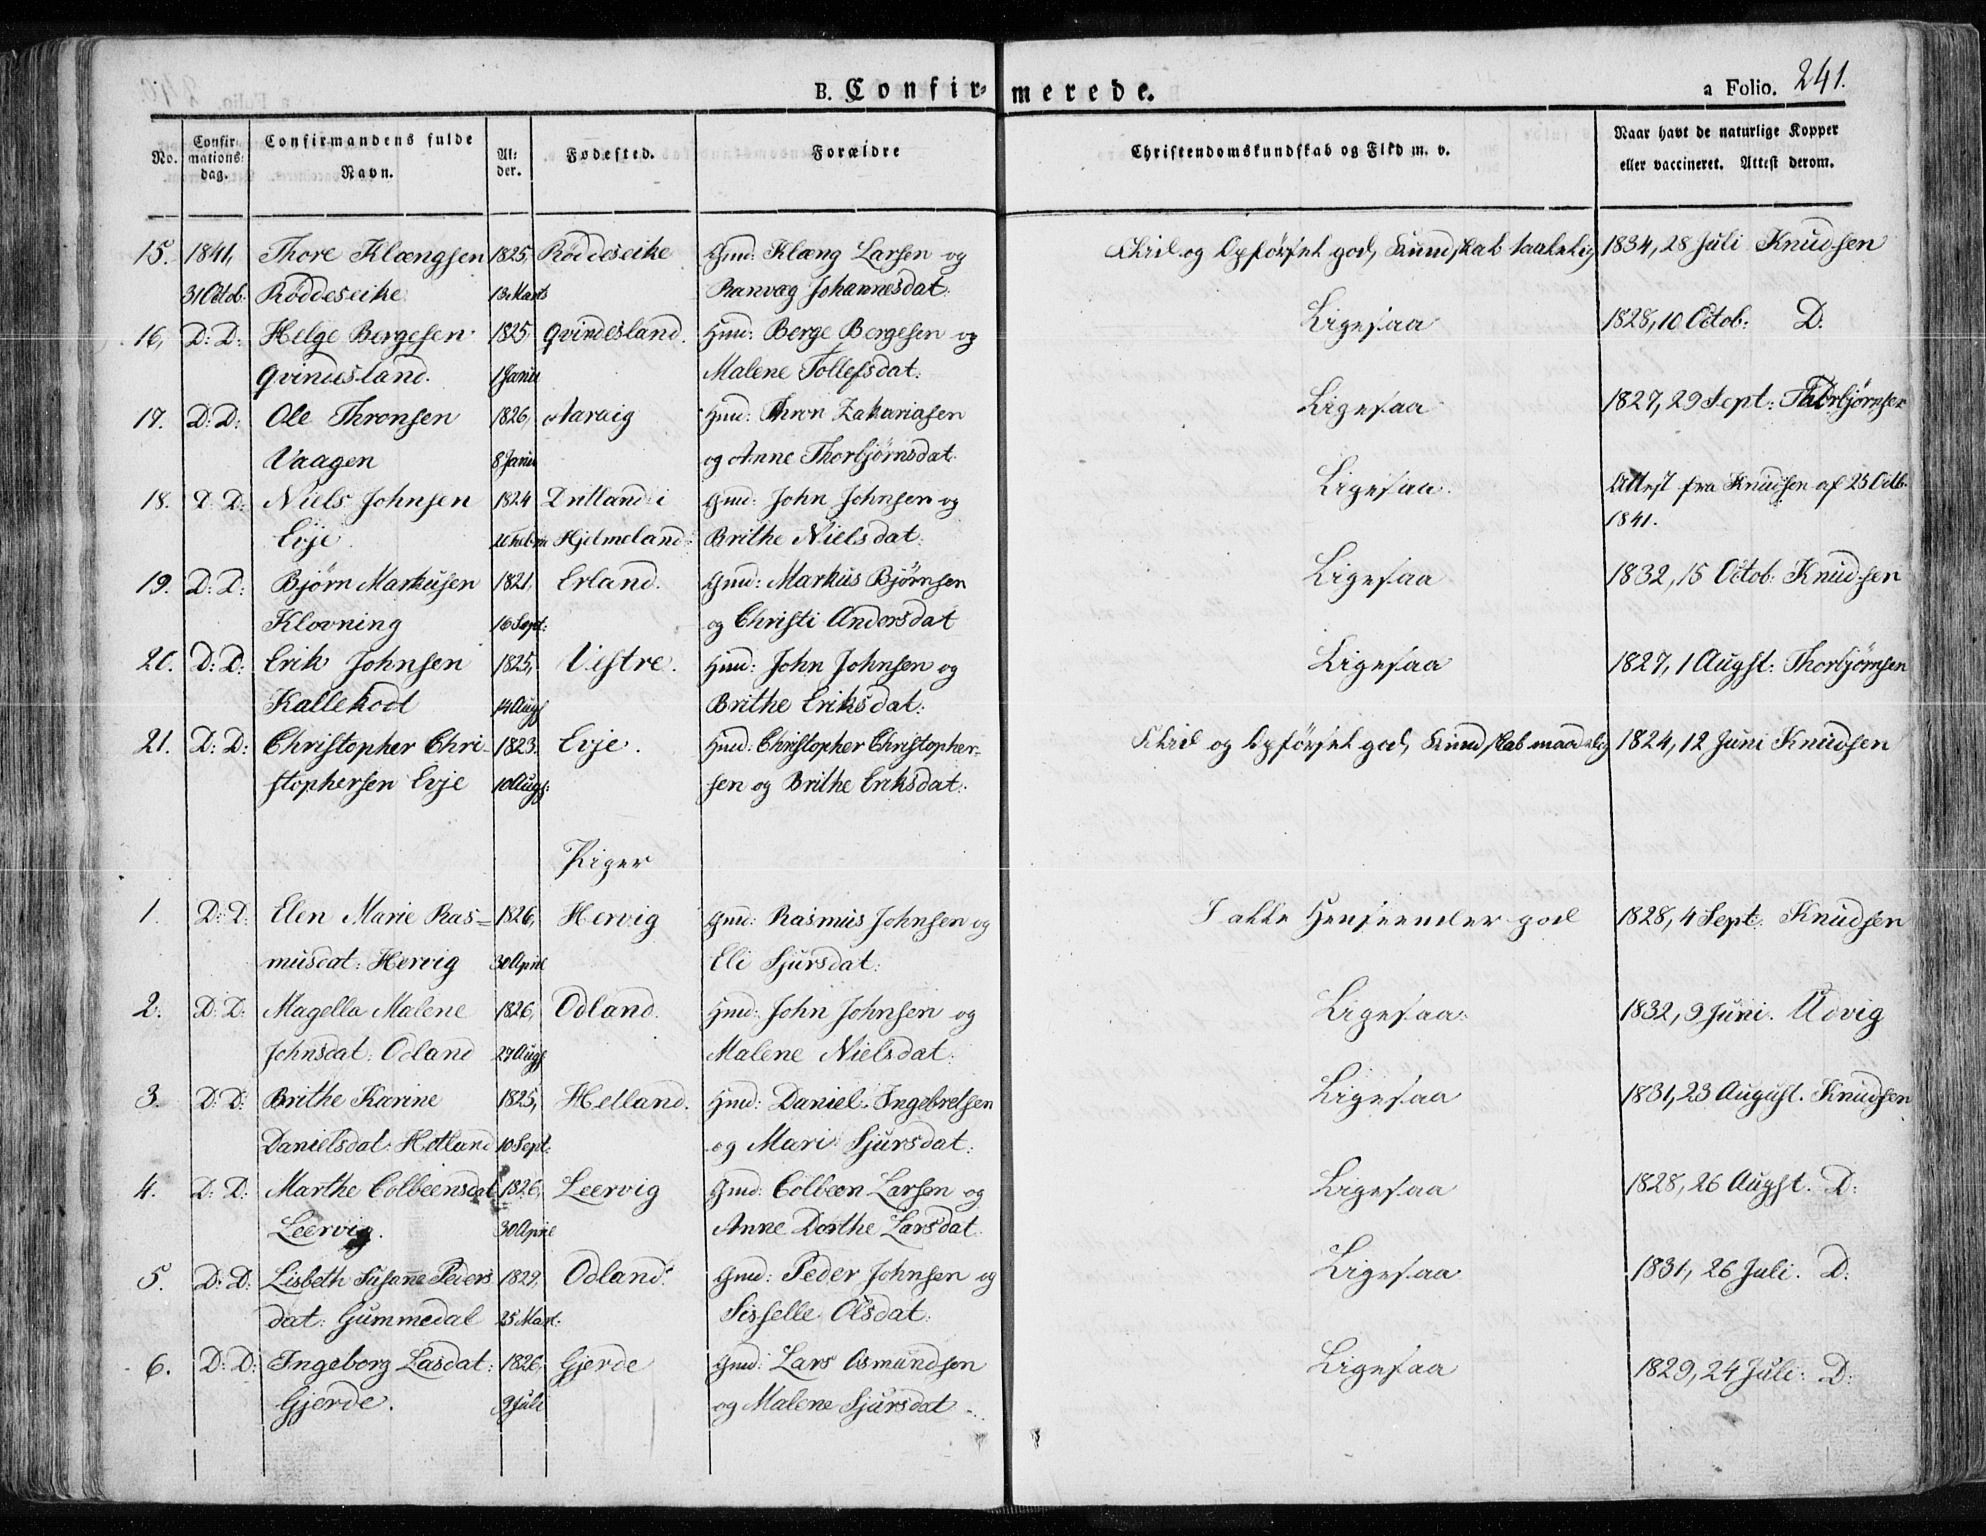 B. Confirmerede. a Folio. 241.
No. Confirmationsdag. Confirmandens fulde Navn. Alder. Fødested. Forældre Christendomskundskab og Flid m. v. Naar havt de naturlige Kopper eller vaccineret. Attest derom.
15. 1841, Thore Klængsen 1825, Röddeseike Gmd: Klæng Larsen og Flid og Opførsel god, Kundskab taalelig 1834, 28 Juli Knudsen
31 Octob: Röddeseike 13 Marts Ranvæg Johannesdat:
16, D: D: Helge Bergesen 1825, Qvindesland. Gmd: Berge Bergesen og Ligesaa 1828, 10 Octob: D:
Qvindesland. 1 Janu Malene Tollefsdat:
17. D: D: Ole Thronsen 1826, Aaraig Gmd: Thron Zakariasen Ligesaa 1827, 29 Sept: Thorbjørnsen
Vaagen 8 Janu og Anne Thorbjørnsdat.
18. D: D: Niels Johnsen 1824 i Gmd: John Johnsen og Ligesaa. Attest fra Knudsen af 25 Octb.
Evje. Hjelmeland: Brithe Nielsdat: 1841.
19. D: D: Bjørn Markusen 1821, Erland. Gmd: Markus Bjørnsen Ligesaa 1832, 15 Octob: Knudsen
Klovning 16 Sept: og Christi Andersdat
20. D: D: Erik Johnsen 1825, Vestre. Gmd: John Johnsen og Ligesaa 1827, 1 Augst: Thorbjørnsen
Kallekodt 14 Augs Brithe Eriksdat:
21. D: D: Christopher Chri- 1823. Evje. Gmd: Christopher Christopher- Flid og Opførsel god, Kundskab maadelig 1824, 12 Juni Knudsen
stophersen Evje 10 Augs: sen og Brithe Eriksdat:
Piger
1. D: D. Elen Marie Ras- 1826, Hervig Gmd: Rasmus Johnsen og I alle Henseender god 1828, 4 Sept: Knudsen
musdat: Hervig 30 April Eli Sjursdat:
2. D: D: Magella Malene 1826, Odland. Gmd: John Johnsen og Ligesaa. 1832, 9 Juni. Udvig
Johnsdat: Odland 27 Augs Malene Nielsdat:
3. D: D: Brithe Karine 1825, Hetland. Gmd: Daniel Ingebretsen Ligesaa 1831, 23 August. Knudsen
Danielsdat: Hetland 10 Sept: og Mari Sjursdat:
4. D: D: Marthe Colbeensdat 1826, Leervig Gmd: Colbeen Larsen og Ligesaa 1828, 26 Augst. D:
Leervig. 30 April Anne Dorthe Larsdat
5. D: D: Lisbeth Susanne Peders 1829. Odland. Gmd: Peder Johnsen og Ligesaa 1831, 26 Juli. D:
dat: Gummedal 25 Mart: Sisselle Olsdat:
6. D: D: Ingeborg Lasdat: 1826 Gjerde Gmd: Lars Osmundsen Ligesaa 1829, 24 Juli: D:
Gjerde. 9 Juli og Malene Sjursdat